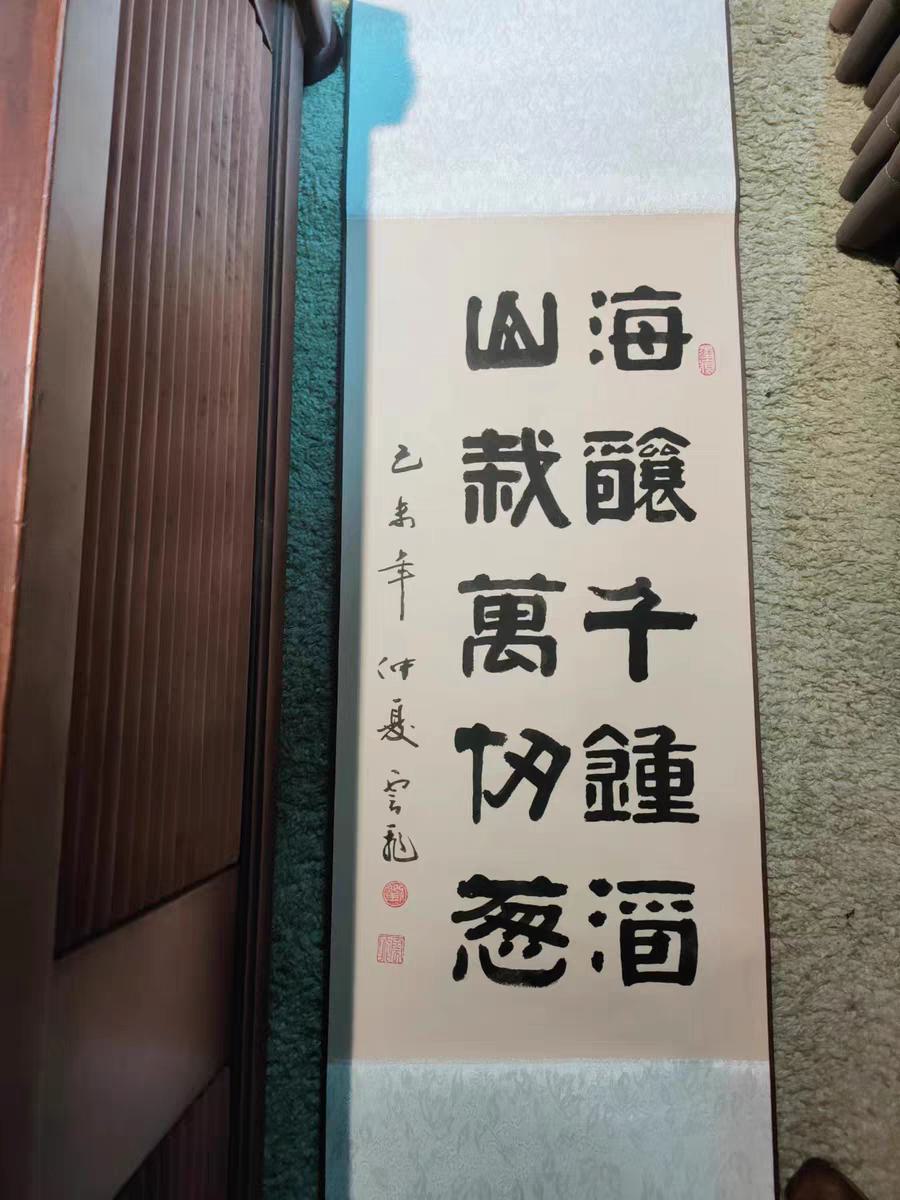 海釀千鍾酒
山栽萬仞葱
己未年仲夏雲